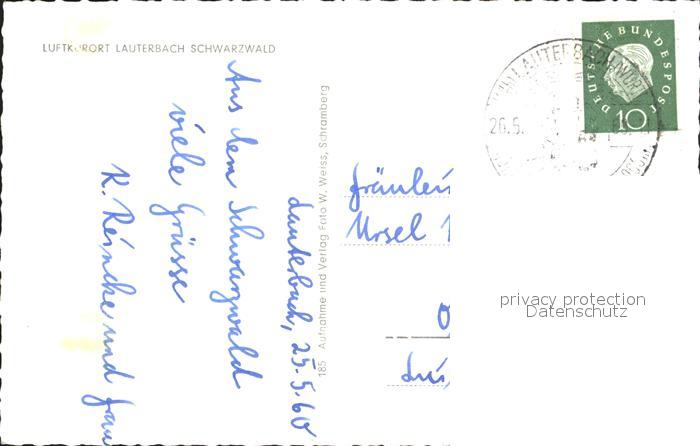 LUFTKURORT LAUTERBACH SCHWARZWALD
DEUTSCHE BUNDESPOST
10
LAUTERBACH
26.5.
Lauterbach, 25.5.60
Aus dem Schwarzwald
viele Grüsse
K. Reincke und Frau
185 Aufnahme und Verlag Foto W. Weiss, Schramberg
Fräulein
Ursel
privacy protection
Datenschutz